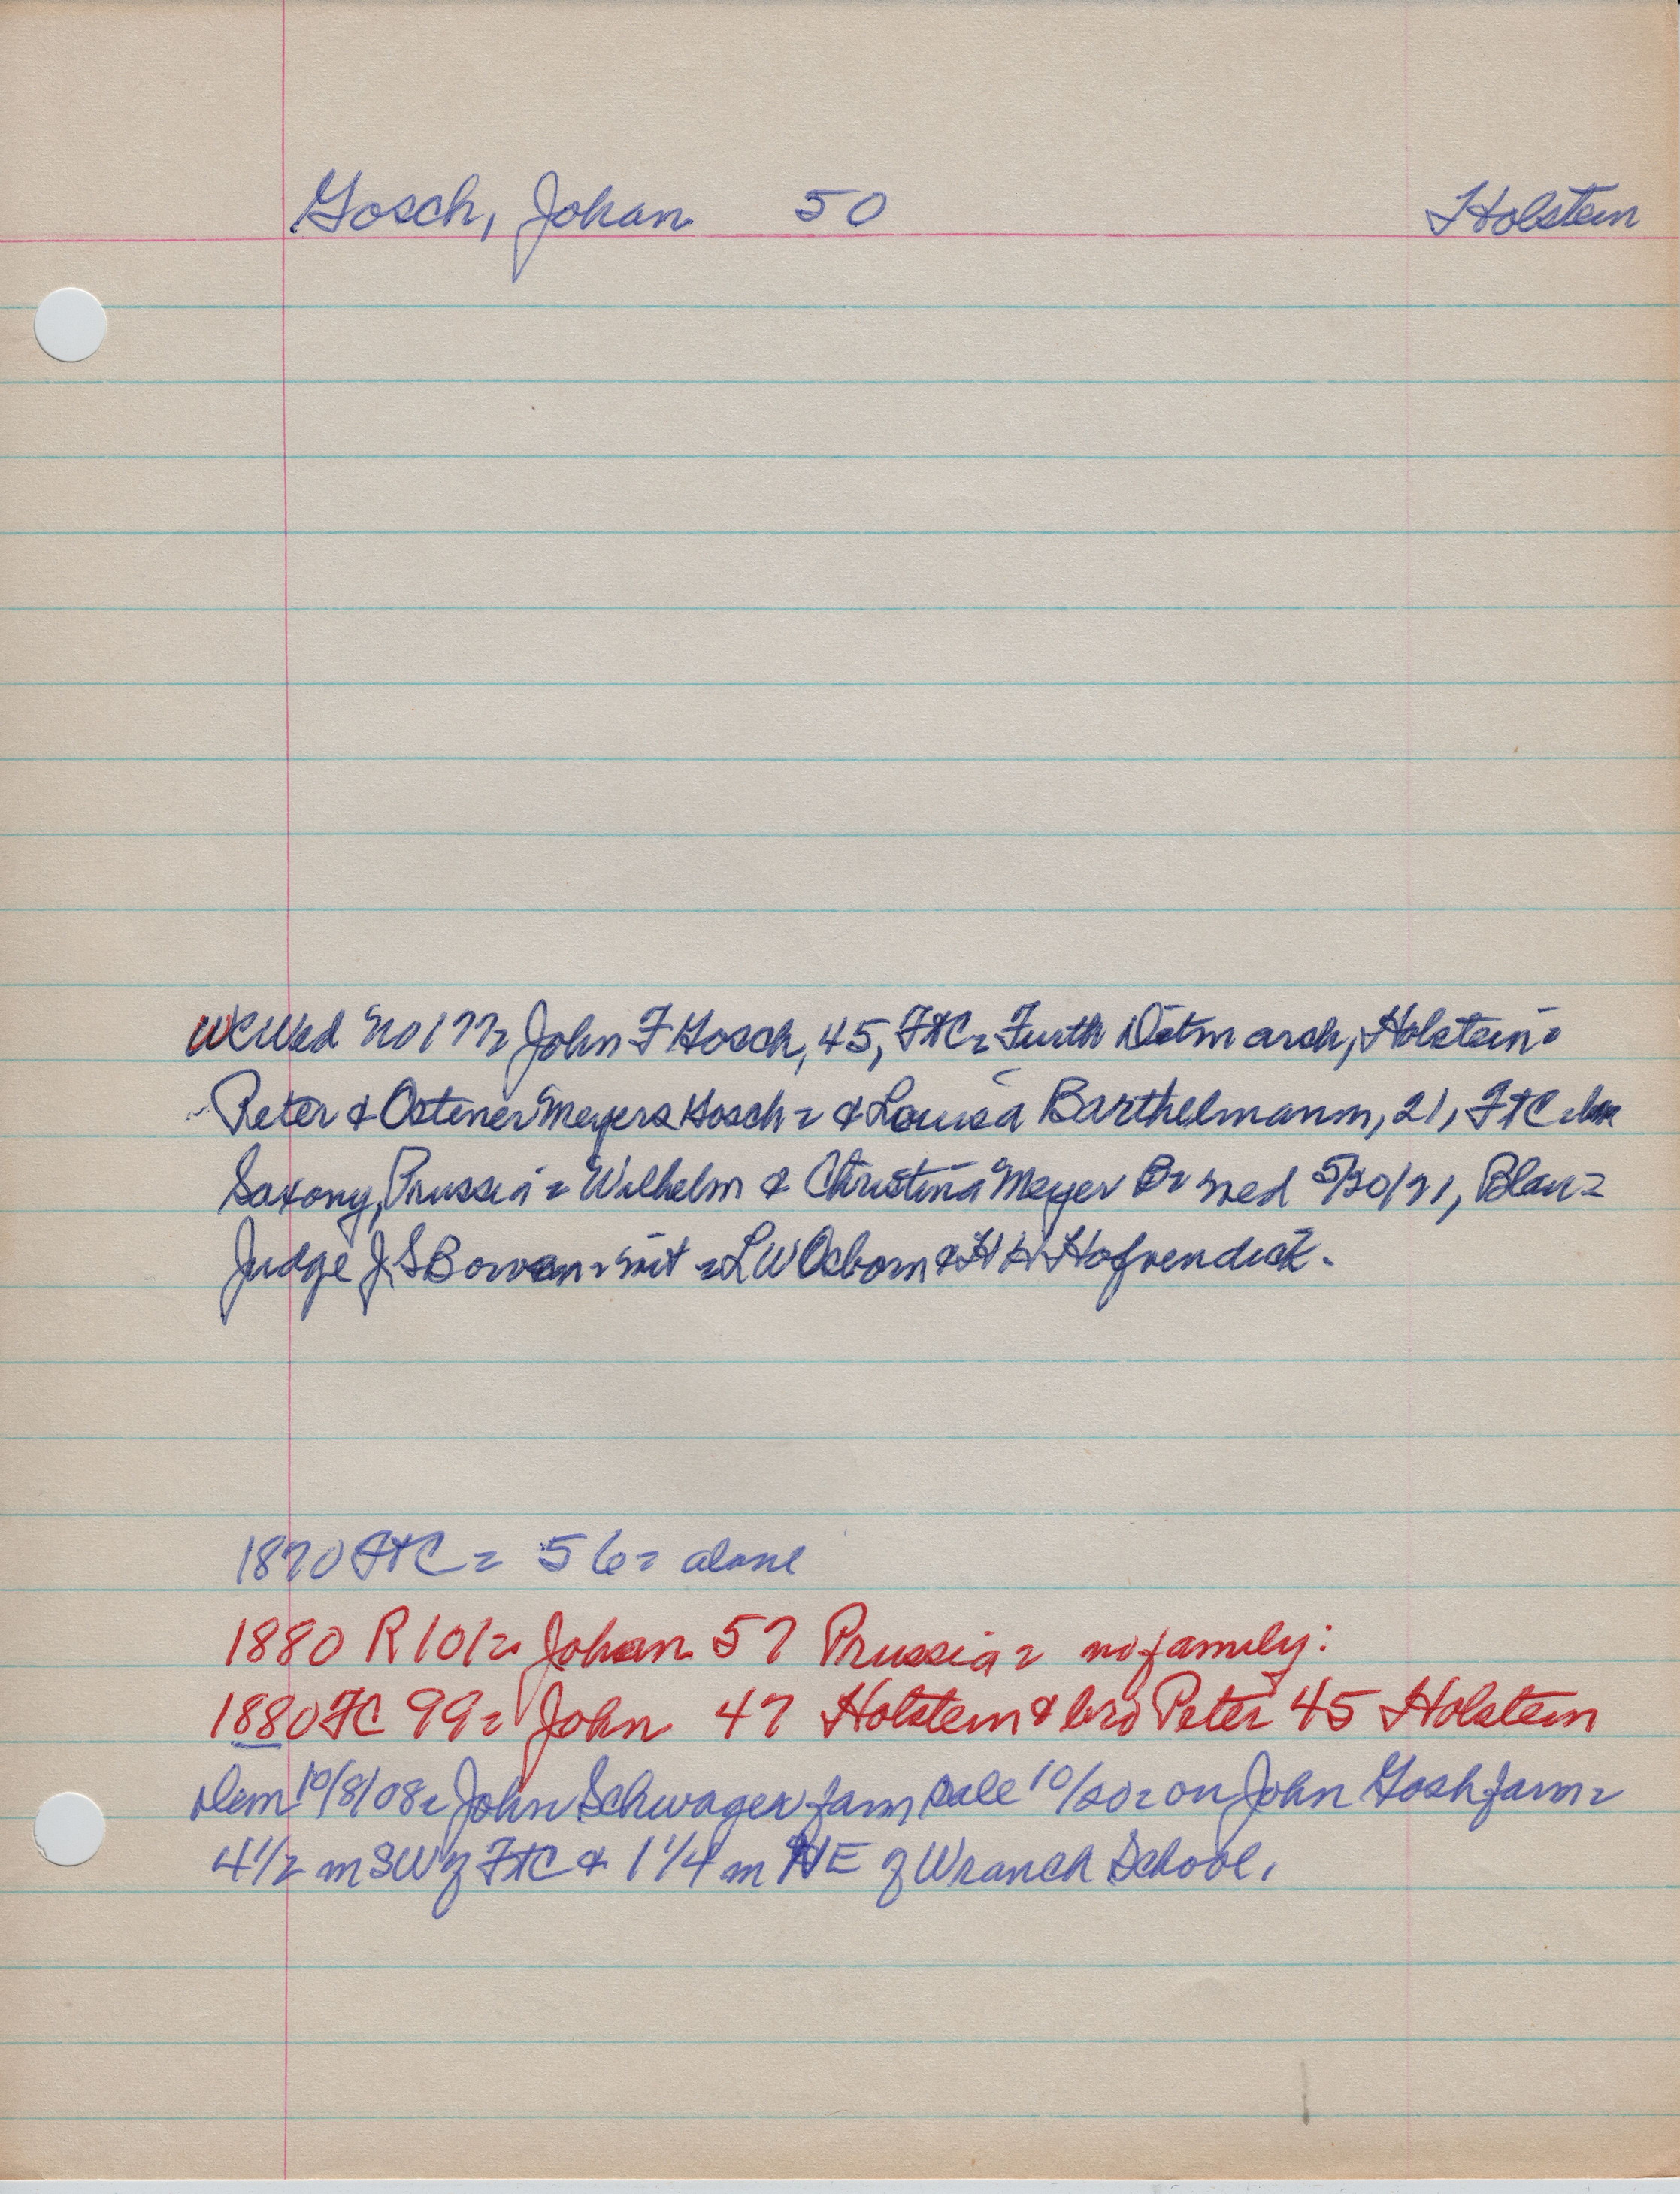 Gosch, Johan 50 Holstein
WCWed No 177= John F Gosch, 45, FtC= Furth Ditmarsh, Holstein=
Peter & Ostener Meyers Gosch= & Louisa Barthelmann, 21, FtC
Saxony, Prussia= Wilhelm & Christina Meyer B= wed 5/20/71, Blair=
Judge J.S Bowen= wit= L W Osborn & H H Hofvendick.
1870 FtC= 56= alone
1880 R 101= Johan 57 Prussia= no family:
1880 FC 99= John 47 Holstein & bro Peter 45 Holstein
Dem 10/8/08= John Schwager farm sale 10/20= on John Gosh farm=
4 1/2 m SW of FtC & 1 1/4 m NE of Wranch School.